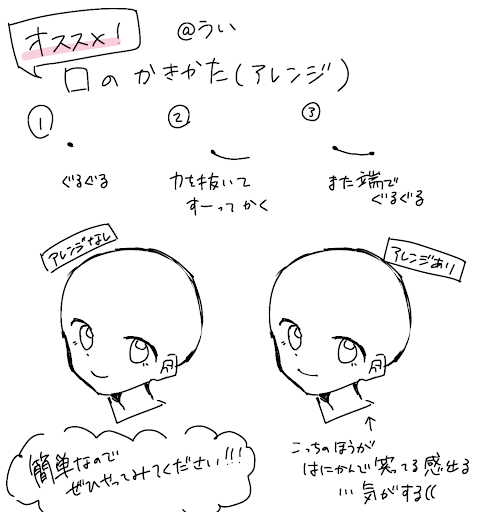 オススメ!
@うい
口のかきかた(アレンジ)
①
ぐるぐる
②
力を抜いて
すーってかく
③
また端で
ぐるぐる
アレンジなし
アレンジあり
簡単なので
ぜひやってみてください!!!
↑
こっちのほうが
はにかんで笑てる感出る
…気がする((